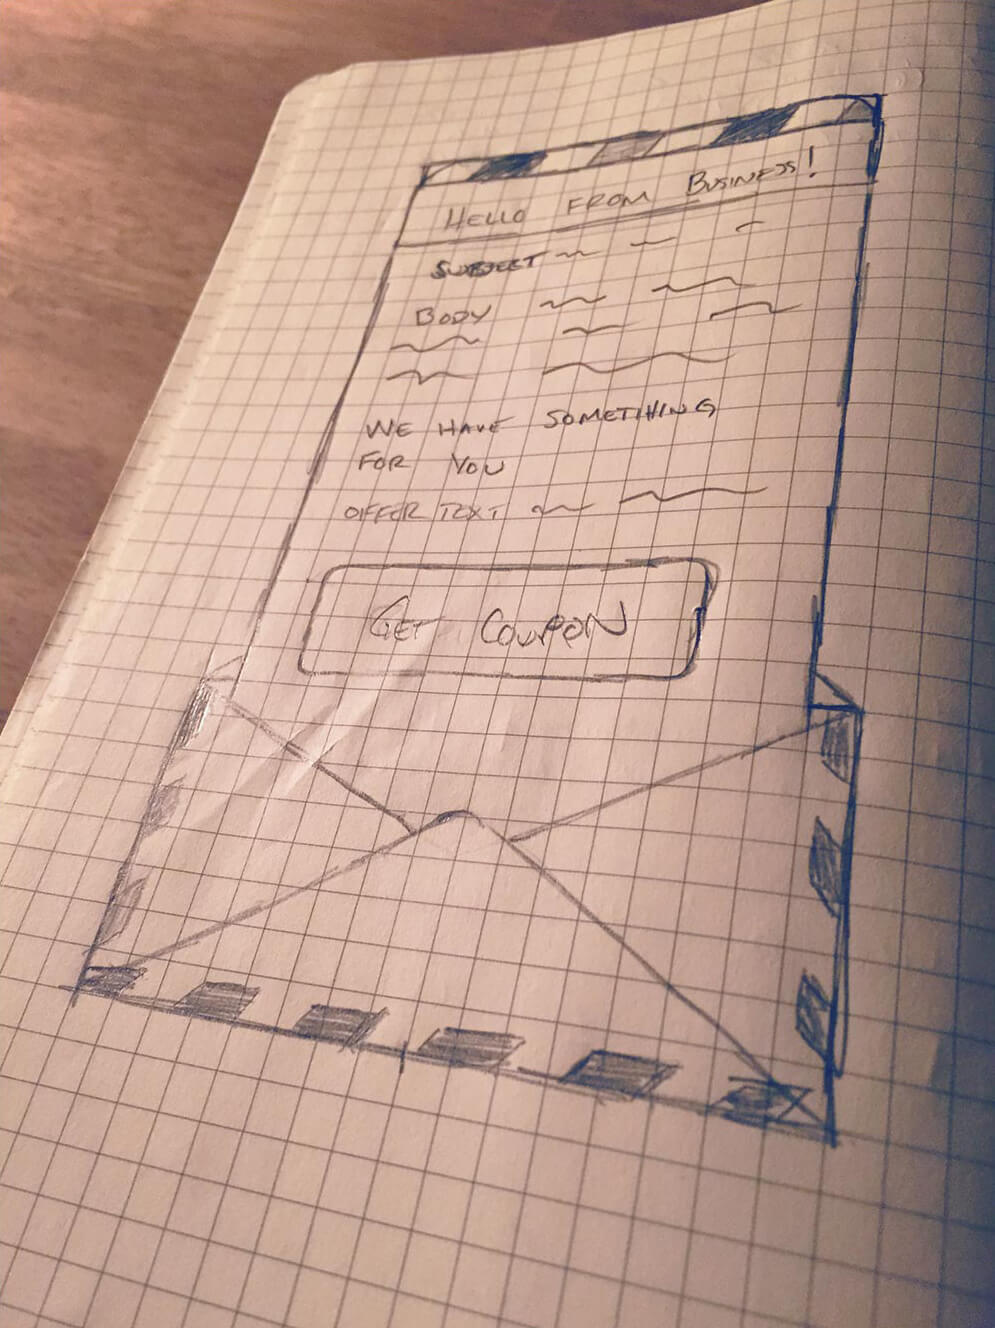 HELLO FROM BUSINESS!
SUBJECT
BODY
WE HAVE SOMETHING
FOR YOU
OFFER TEXT
GET COUPON